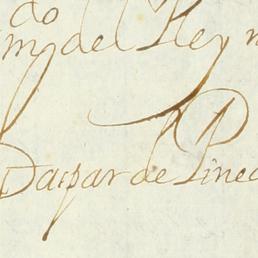 do
m del Rey n
Gaspar de Pined